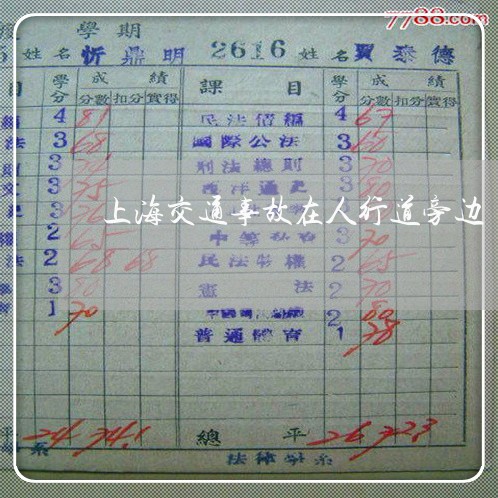 7788.com
學期
姓名 忻鼎明 2616 姓名 賈泰德
目 學分 成績 課目 學分 成績
分數 扣分 實得 分數 扣分 實得
4 81 民法債編 4 67
法 3 68 國際公法 3 60
3 刑法總則 3 70
3 75 西洋通史 3 80
上海交通事故在人行道旁边
2 65 3 70
法 2 68 68 民法物權 2 65
3 80 憲法 2 70
1 70 2 80
普通體育 1 78
平 24 74.1 總平 26 72.3
系 法律學系